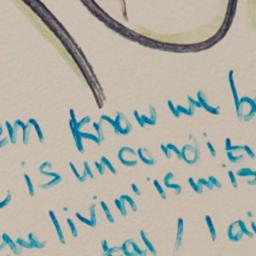 em know we b
is uncondit
livin' is mis
tal / I ai